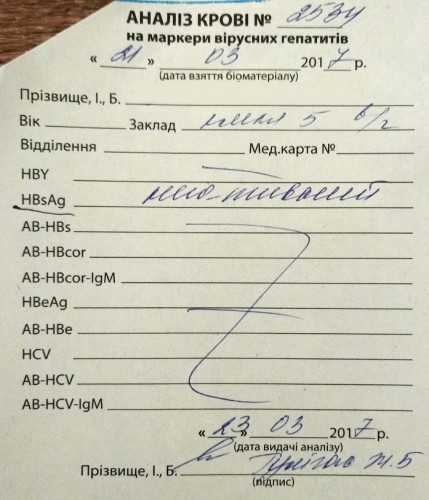 АНАЛІЗ КРОВІ № 2534
на маркери вірусних гепатитів
« 21 » 03 2017 р.
(дата взяття біоматеріалу)
Прізвище, І., Б.
Вік Заклад 5
Відділення Мед.карта №
НВY
HBsAg
АВ-HBs
АВ-HBcor
АВ-HBcor-IgM
HBeAg
АВ-HBe
HCV
АВ-HCV
АВ-HCV-IgM
« 23 » 03 2017 р.
(дата видачі аналізу)
Прізвище, І., Б.
(підпис)